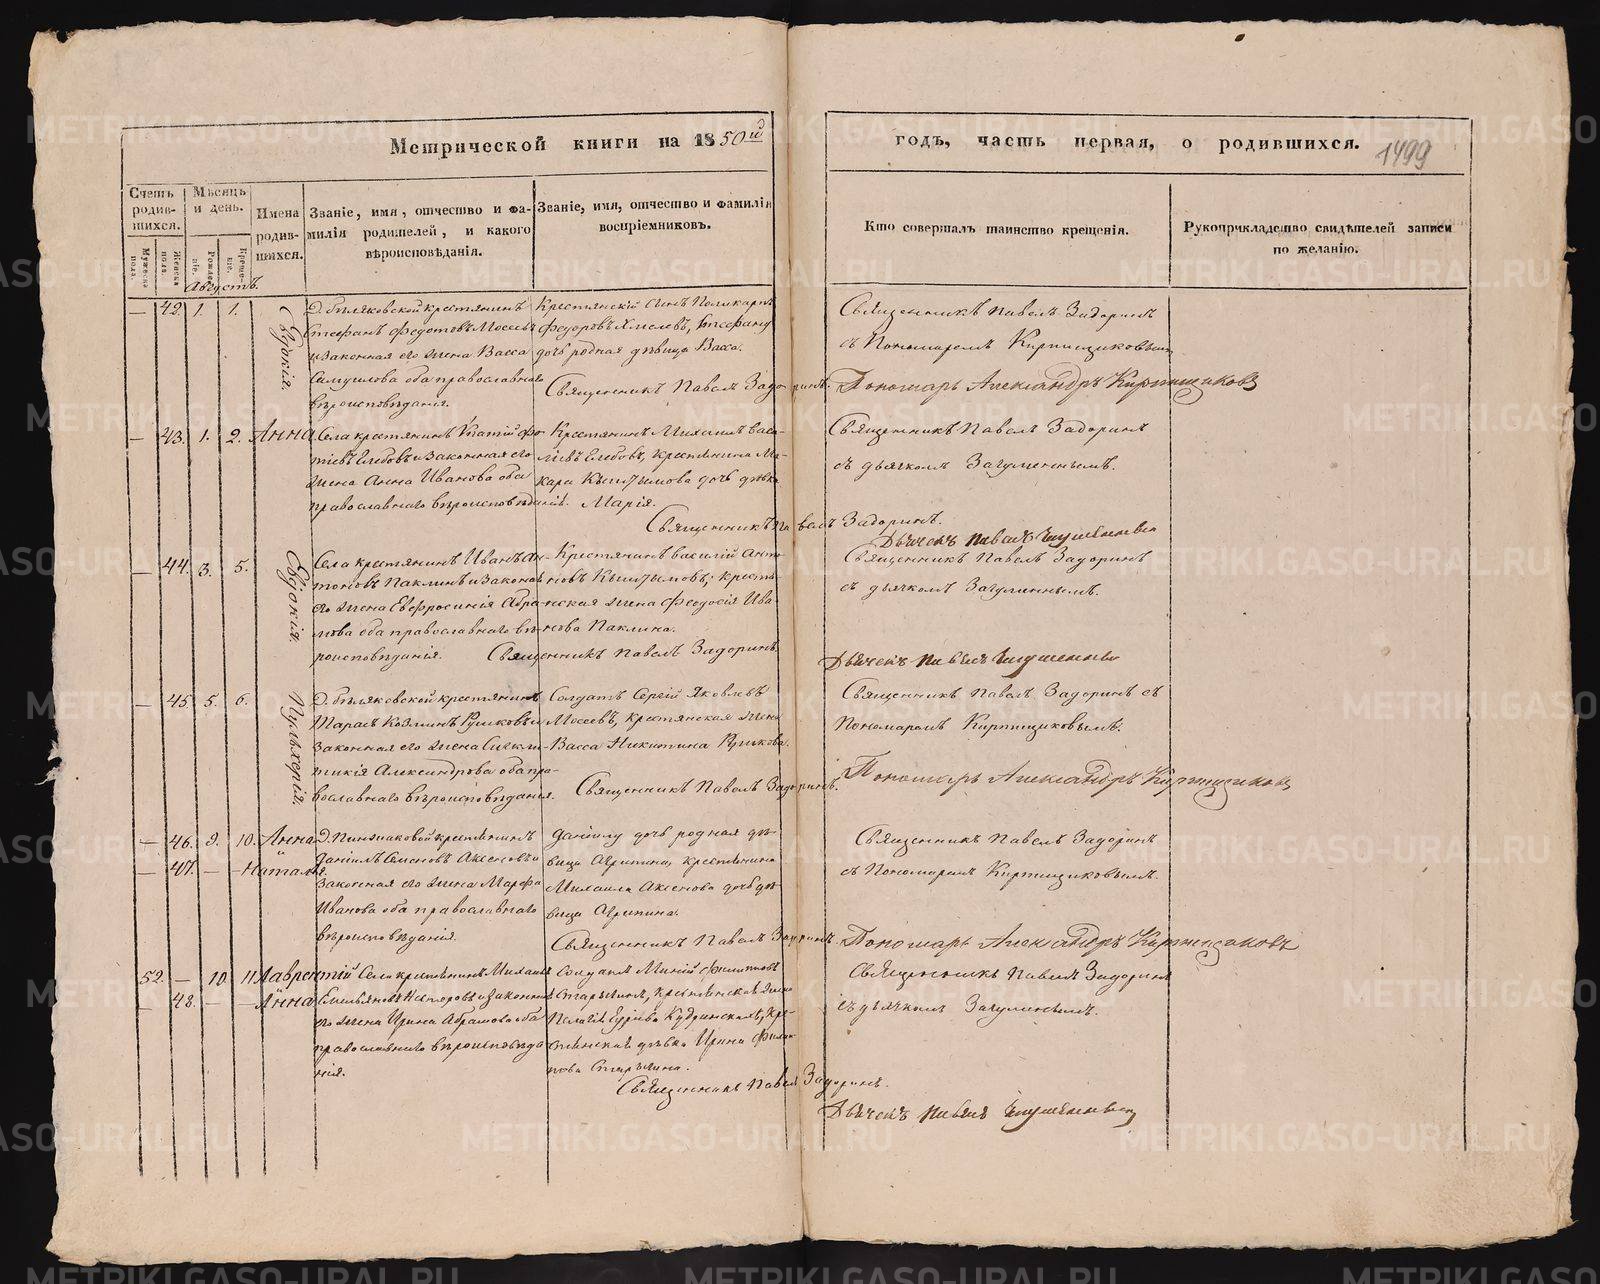 Метрической книги на 1850й
годъ, часть первая, о родившихся.
1499
Счетъ родив-шихся.
Мужеска пола.
Женска пола.
Мѣсяцъ и день.
Рожденіе.
Крещеніе.
Имена родив-шихся.
Званіе, имя, отчество и фа-
милія родителей, и какого
вѣроисповѣданія.
Званіе, имя, отчество и фамилія
воспріемниковъ.
Кто совершалъ таинство крещенія.
Рукоприкладство свидѣтелей записи
по желанію.
Августъ.
— 42. 1. 1. Евдокія.
Д. Бѣляковской крестьянинъ
Стефанъ Федотовъ Мосеевъ
и законная его жена Васса
Самуилова оба православнаго
вѣроисповѣданія.
Крестьянскій сынъ Поликарпъ
Федоровъ Хмелевъ, Стефану
дочь родная дѣвица Васса.
Священникъ Павелъ Задоринъ.
Священникъ Павелъ Задоринъ
съ Пономаремъ Кирпищиковымъ
Пономарь Александръ Кирпищиковъ
— 43. 1. 2. Анна
Села крестьянинъ Ипатій Фо-
тіевъ Глебовъ и законная его
жена Анна Иванова оба
православнаго вѣроисповѣданія.
Крестьянинъ Михаилъ Васи-
ліевъ Глебовъ, крестьянина Ма-
кара Кыштымова дочь дѣвка
Марія.
Священникъ Павелъ Задоринъ.
Священникъ Павелъ Задоринъ
съ дьячкомъ Загуменнымъ.
Дьячекъ Павелъ Загуменныхъ
— 44. 3. 5. Евдокія.
Села крестьянинъ Иванъ Ан-
тоновъ Паклинъ и законная
его жена Евфросинія Абра-
мова оба православнаго вѣ-
роисповѣданія.
Крестьянинъ Василій Анто-
новъ Кыштымовъ, кресть-
нская жена Феодосія Ива-
нова Паклина.
Священникъ Павелъ Задоринъ.
Священникъ Павелъ Задоринъ
съ дьячкомъ Загуменнымъ.
Дьячекъ Павелъ Загуменныхъ
— 45. 5. 6. Пульхерія.
Д. Бѣляковской крестьянинъ
Тарасъ Козминъ Рушковъ и
законная его жена Синкли-
тикія Александрова оба пра-
вославнаго вѣроисповѣданія.
Солдатъ Сергій Яковлевъ
Мосеевъ, крестьянская жена
Васса Никитина
Священникъ Павелъ Задоринъ.
Священникъ Павелъ Задоринъ съ
Пономаремъ Кирпищиковымъ.
Пономарь Александръ Кирпищиковъ
— 46. 9. 10. Анна
— 47. — — Наталья.
Д. крестьянинъ
Даніилъ Семеновъ Аксеновъ и
законная его жена Марфа
Иванова оба православнаго
вѣроисповѣданія.
Даніилу дочь родная дѣ-
вица Агрипина, крестьянина
Михаила Аксенова дочь дѣ-
вица Агрипина.
Священникъ Павелъ Задоринъ.
Священникъ Павелъ Задоринъ
съ Пономаремъ Кирпищиковымъ.
Пономарь Александръ Кирпищиковъ
52. — 10. 11. Лаврентій
— 48. — — Анна
Села крестьянинъ Михаилъ
Емельяновъ Нестеровъ и законная
его жена Ирина Абрамова оба
православнаго вѣроисповѣда-
нія.
Солдатъ Миній Филиповъ
крестьянская жена
Пелагія Кудринскихъ, кре-
стьянская дѣвка Ирина Фили-
пова
Священникъ Павелъ Задоринъ.
Священникъ Павелъ Задоринъ
съ дьячкомъ Загуменнымъ.
Дьячекъ Павелъ Загуменныхъ
METRIKI.GASO-URAL.RU